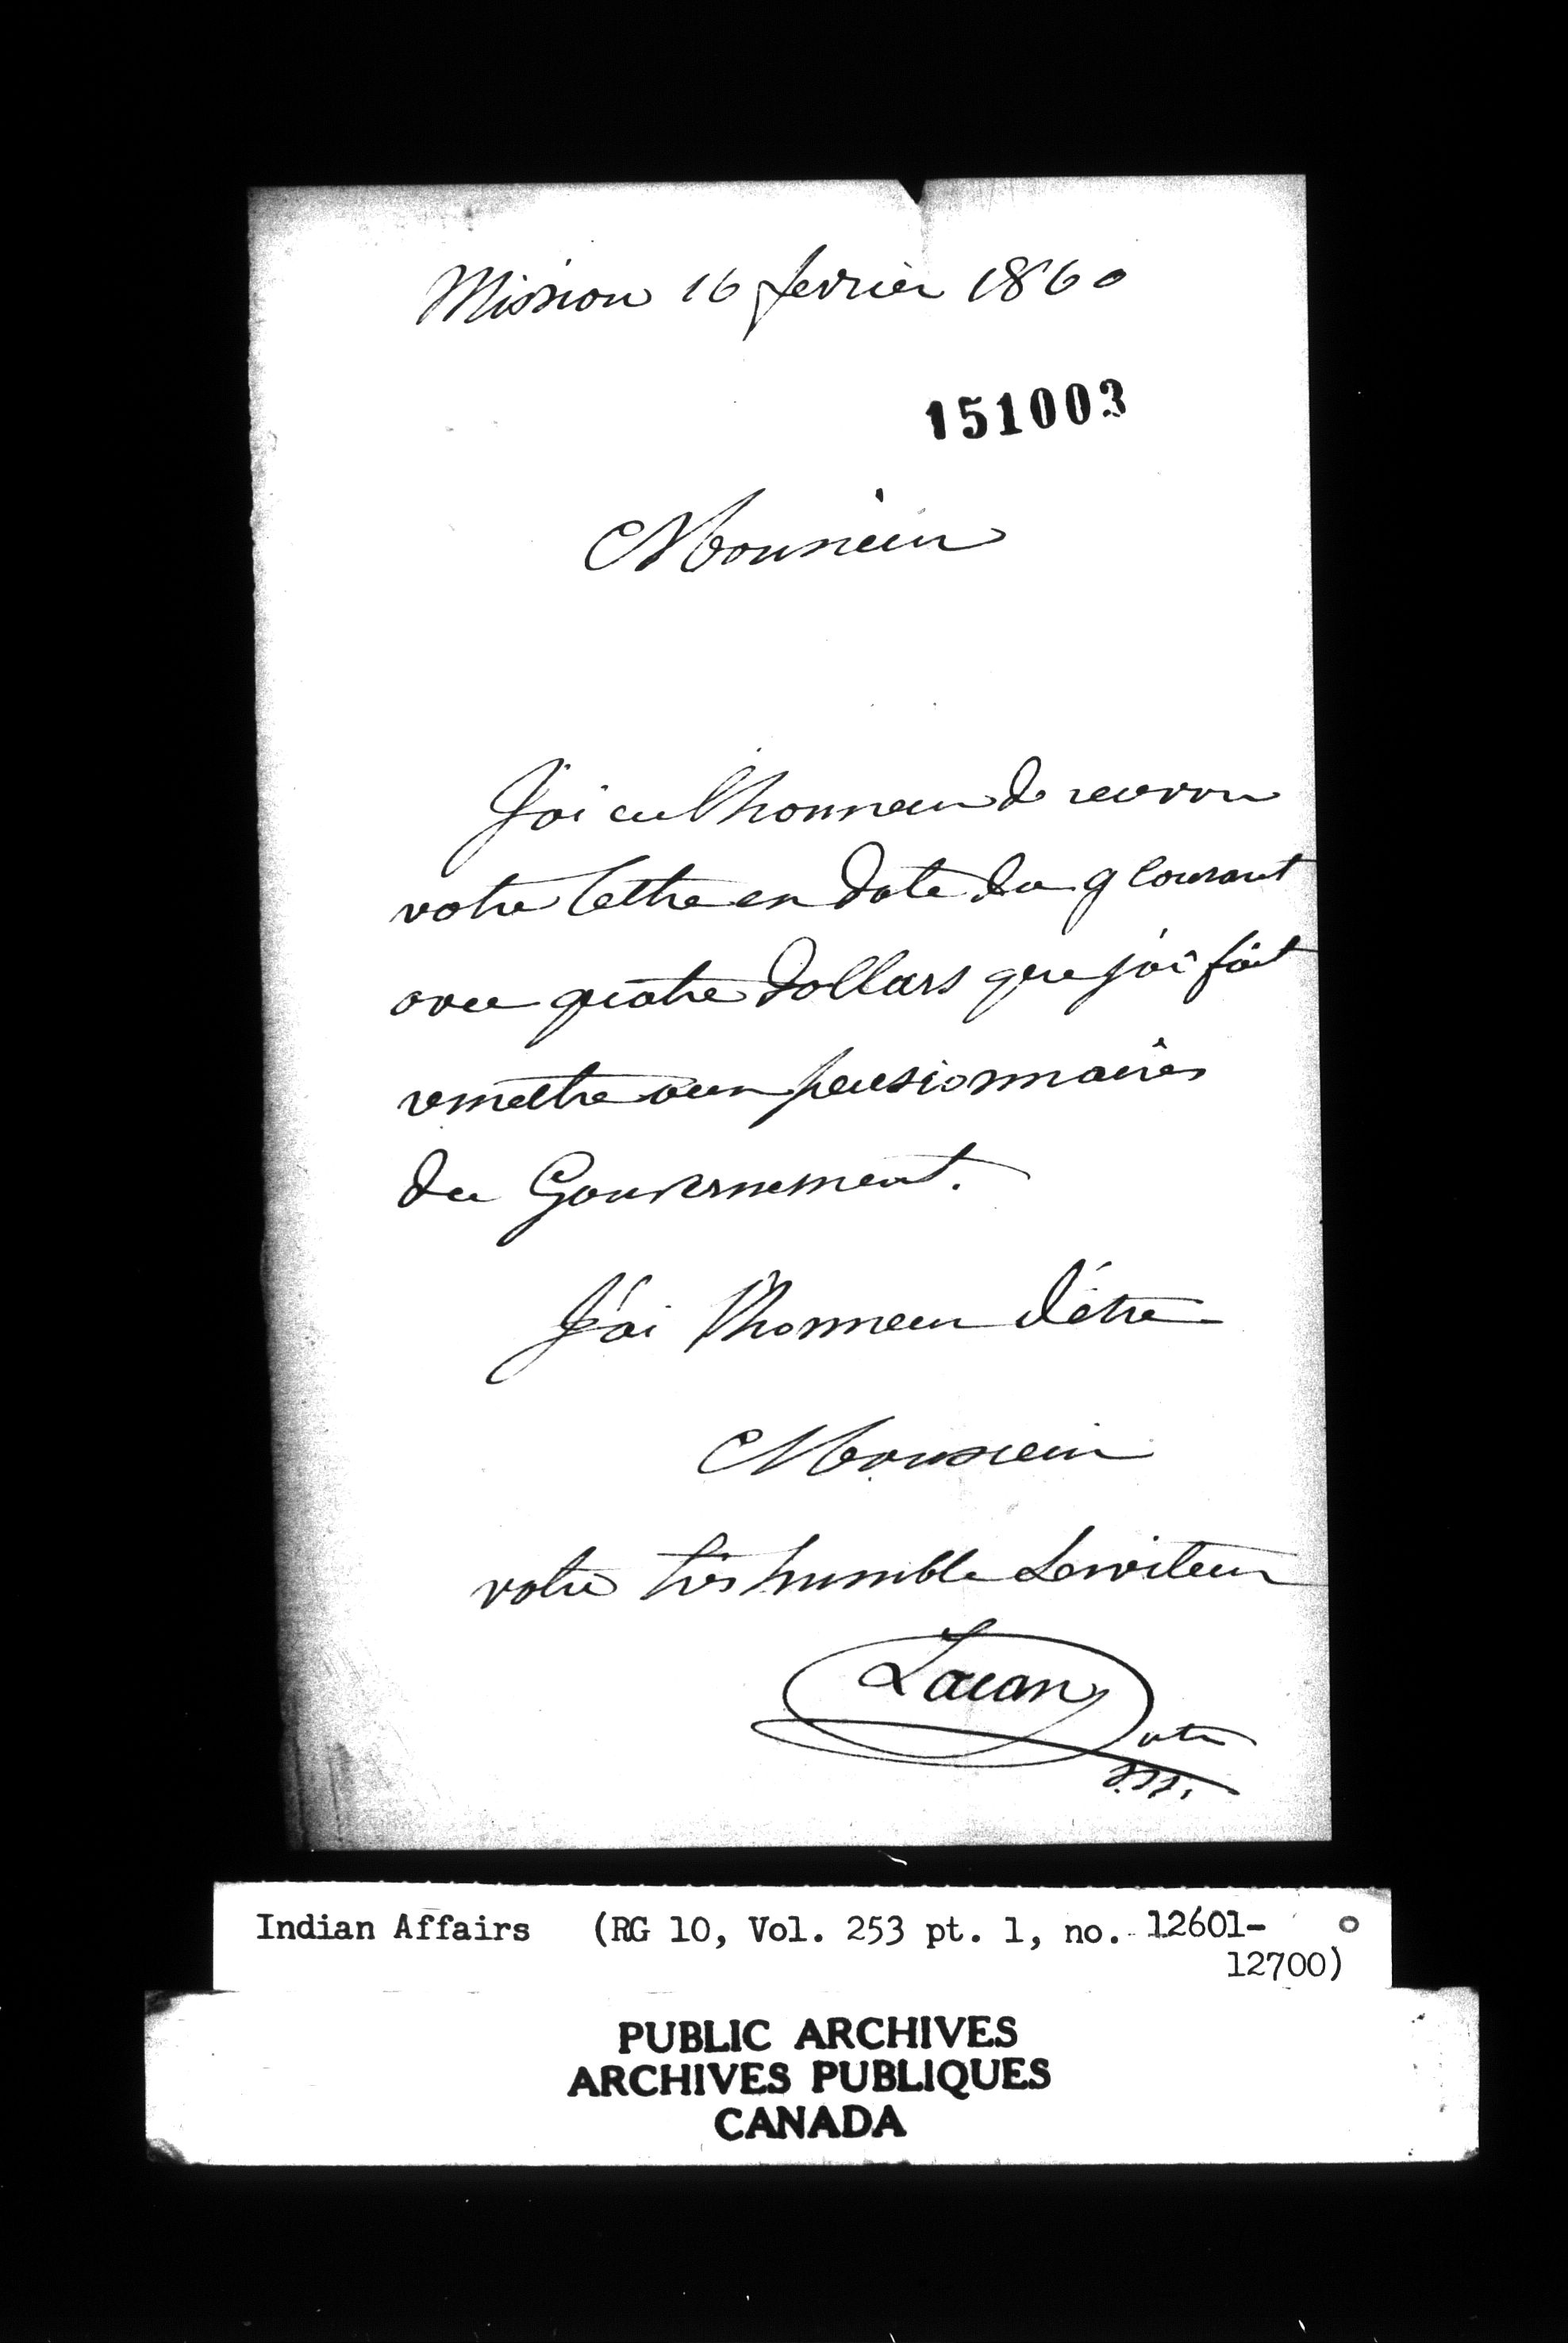 Mission 16 fevrier 1860
151003
Monsieur
J'ai eu l'honneur de recevoir
votre lettre en date du 9 courant
avec quatre dollars que j'ai fait
remettre aux pensionnaires
du Gouvernement.
J'ai l'honneur d'être
Monsieur
votre très humble Serviteur
Lacan
ptre
Indian Affairs (RG 10, Vol. 253 pt. 1, no. 12601-
12700)
PUBLIC ARCHIVES
ARCHIVES PUBLIQUES
CANADA